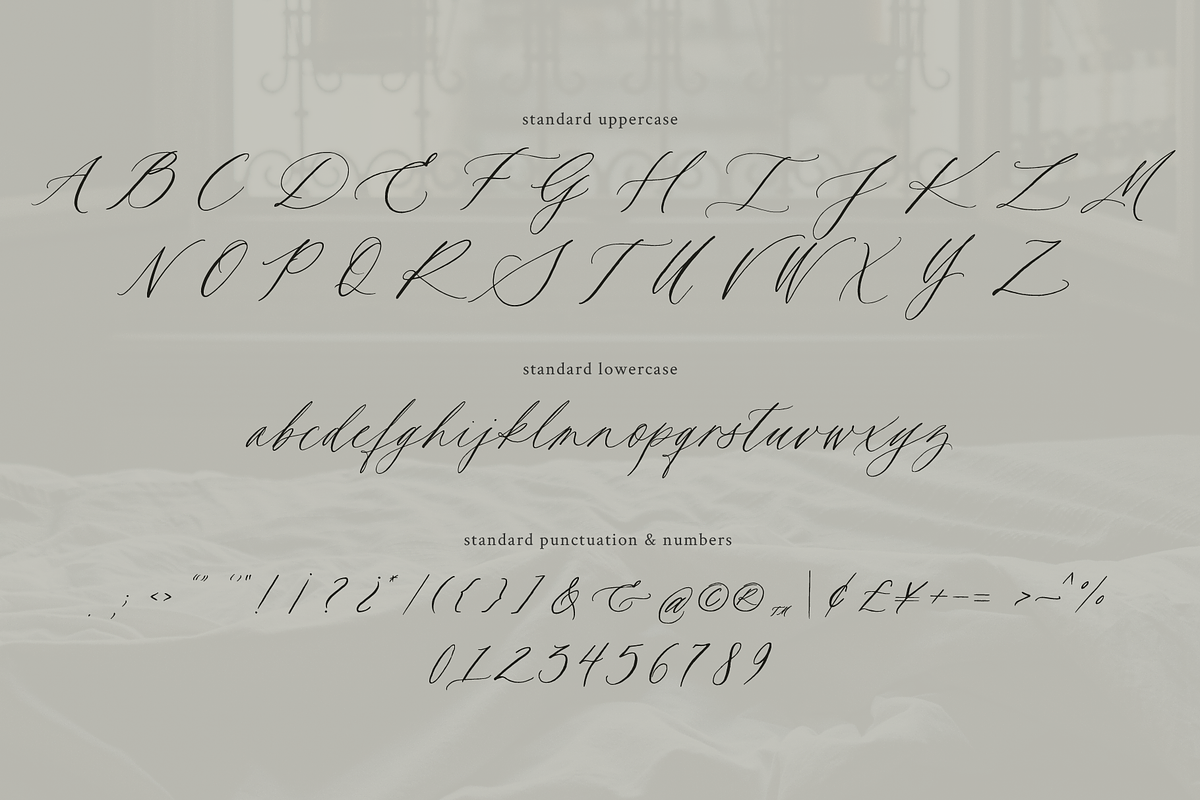 standard uppercase
A B C D E F G H I J K L M
N O P Q R S T U V W X Y Z
standard lowercase
abcdefghijklmnopqrstuvwxyz
standard punctuation & numbers
. ; <> “” ‘’" ! ¡ ? ¿ * / ( { } ] & & @ © ® ™ | ¢ £ ¥ + − = > ~ ^ %
0 1 2 3 4 5 6 7 8 9